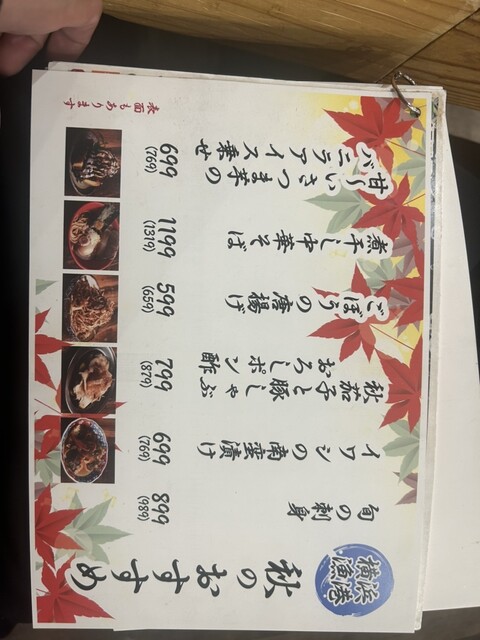 横浜漁港
秋のおすすめ
旬の刺身
899
(989)
イワシの南蛮漬け
699
(769)
秋茄子と豚しゃぶ
おろしポン酢
799
(879)
ごぼうの唐揚げ
599
(659)
煮干し中華そば
1199
(1319)
甘〜いさつま芋の
バニラアイス乗せ
699
(769)
表面もあります